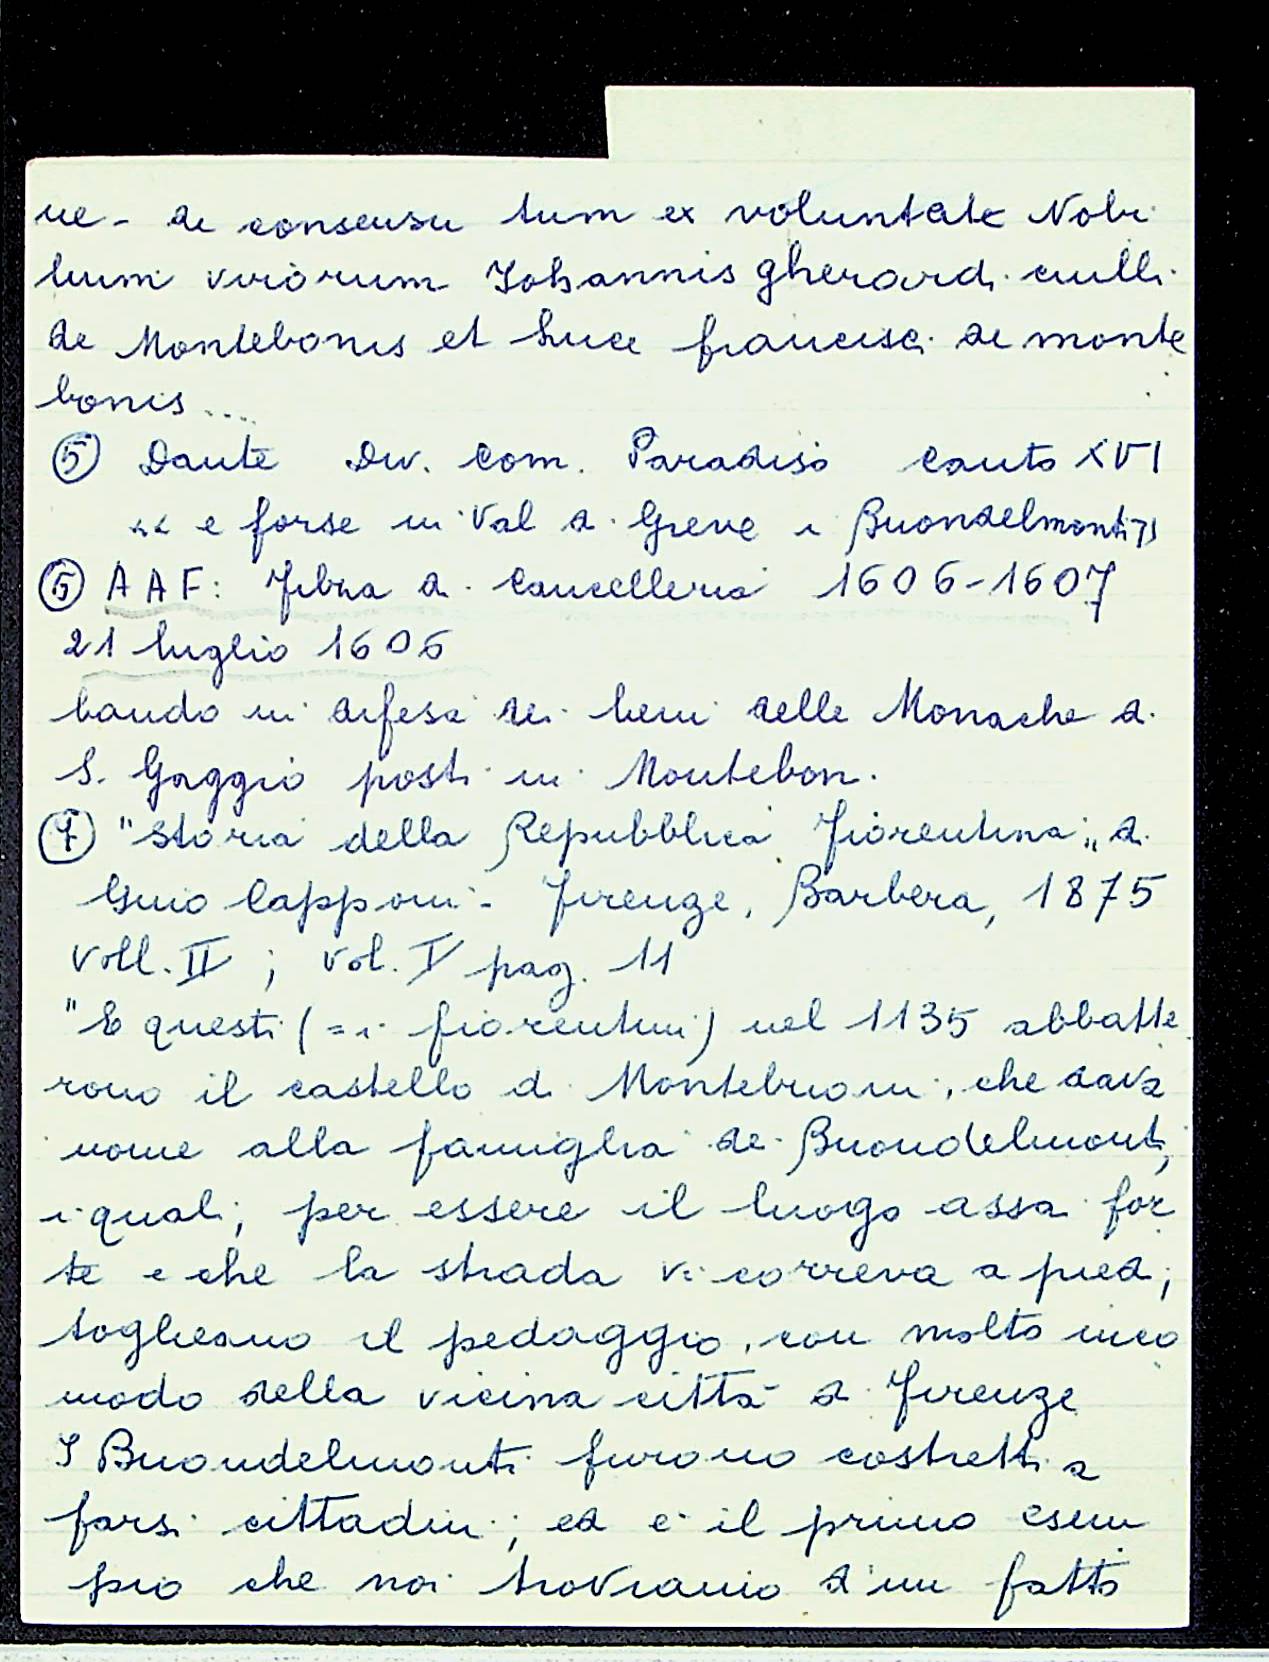 ne - de consensu tum ex voluntate Nobi
lium virorum Johannis gherardi
de Montebonis et Luce francisci de monte
bonis ...
⑤ Dante Div. Com. Paradiso canto XVI
"e forse in Val di Greve i Buondelmonti"
⑥ AAF: Filza di Cancelleria 1606-1607
21 luglio 1606
bando in difesa dei beni delle Monache di
S. Gaggio posti in Monteboni.
⑦ "Storia della Repubblica Fiorentina" di
Gino Capponi - Firenze, Barbera, 1875
voll. II; vol. I pag. 11
"E questi (= i fiorentini) nel 1135 abbatte
rono il castello di Montebuoni, che dava
nome alla famiglia de' Buondelmonti,
i quali, per essere il luogo assai for
te e che la strada vi correva a piedi,
toglieano il pedaggio, con molto inco
modo della vicina città di Firenze
I Buondelmonti furono costretti a
farsi cittadini; ed è il primo esem
pio che noi troviamo d'un fatto